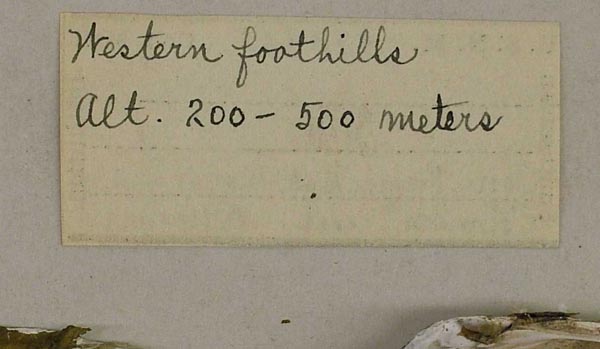 Western foothills
Alt. 200 - 500 meters